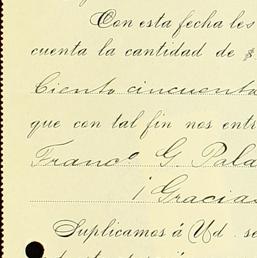 Con esta fecha les
cuenta la cantidad de $
Ciento cincuenta
que con tal fin nos entr
Franco G. Pala
¡Gracias
Suplicamos á Ud. se